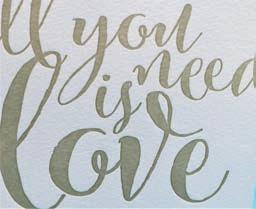 ll you
need
is
love